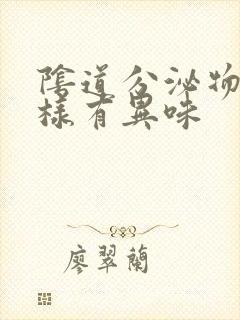 陰道分泌物
樣有異味
廖翠蘭